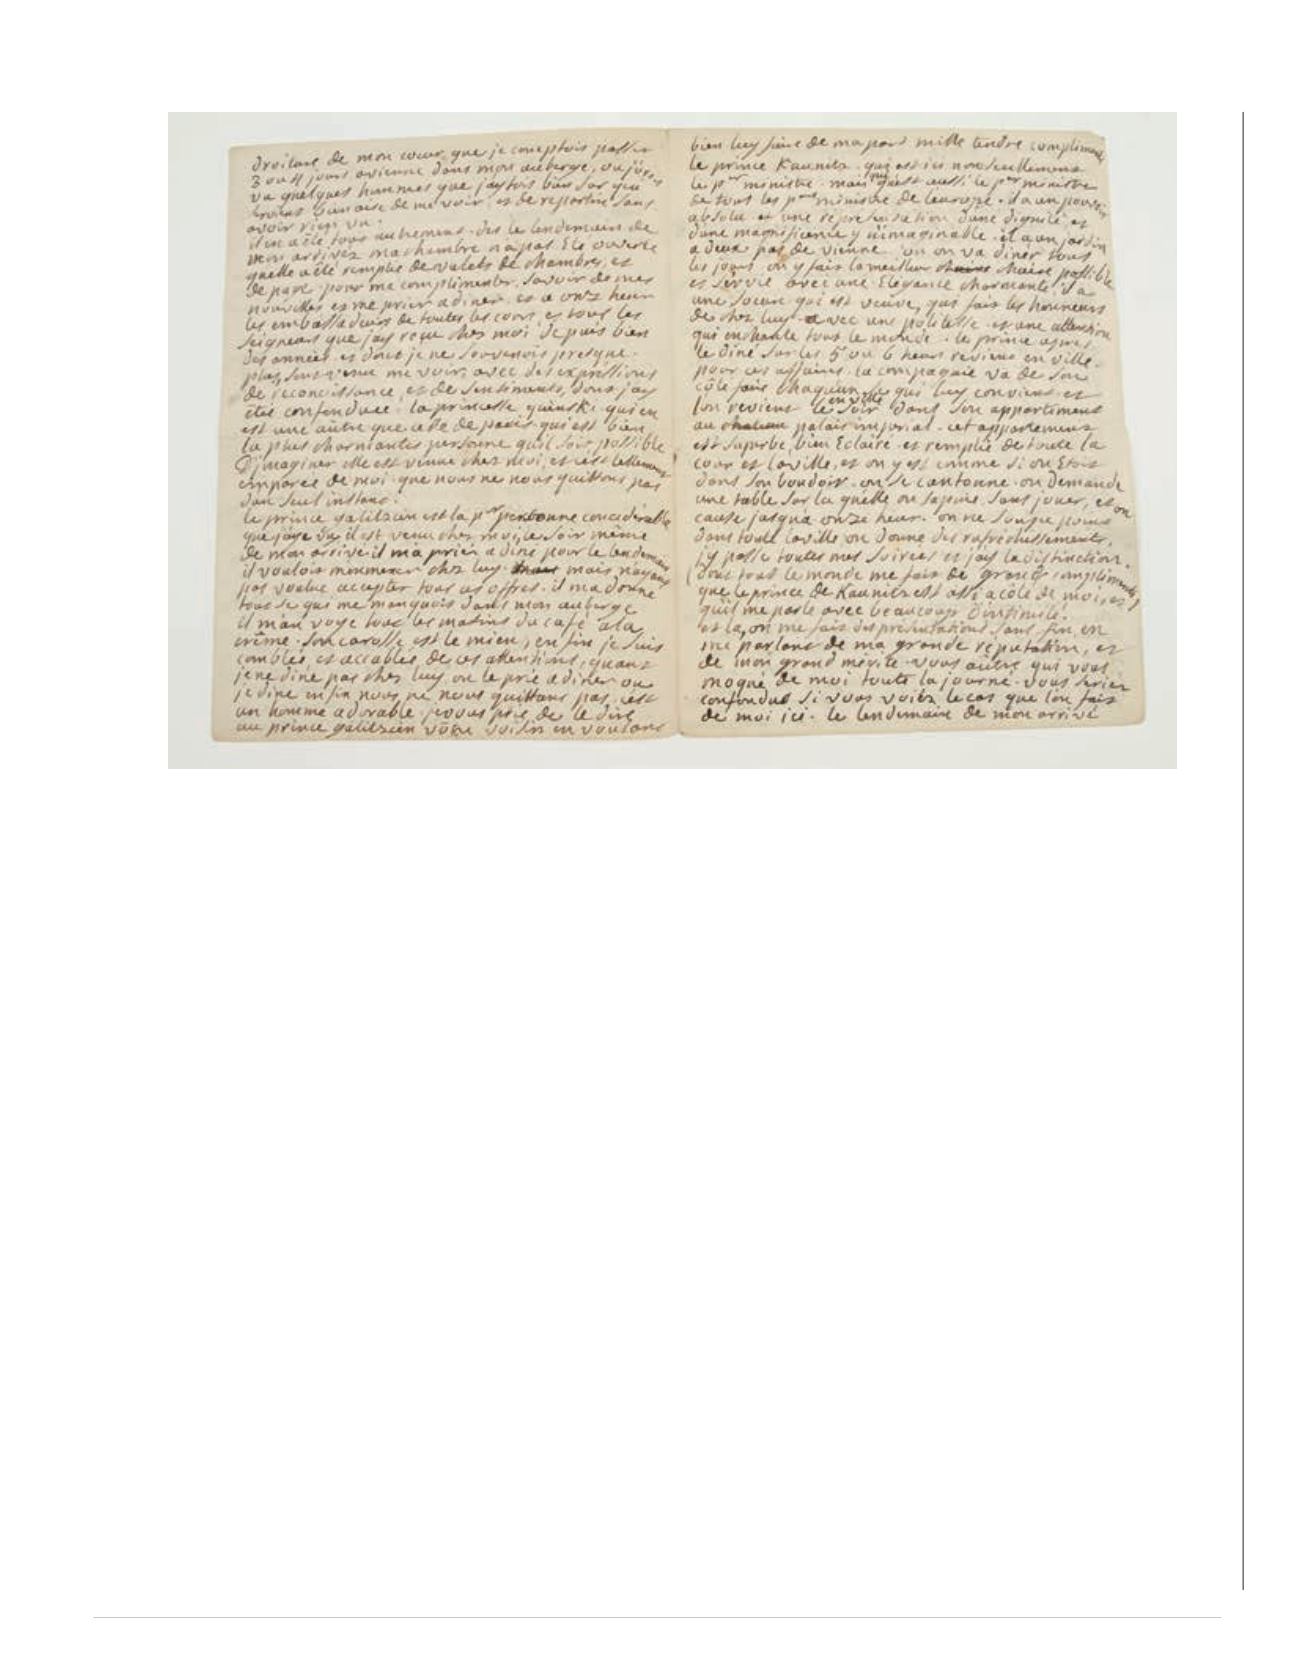 droiture de mon cœur, que je comptois passer
3 ou 4 jours a vienne dans mon auberge, ou
va quelques hommes que
bien aise de me voir, et de repartir sans
avoir rien vu.
il en a été tout autrement. des le lendemain de
mon arrivez ma chambre na pas Eté ouverte
quelle a été remplie de valets de chambres, et
de page pour me complimenter, savoir de mes
nouvelles et me prier a diner. et a onze heur
les embassadeurs de toutes les cours et tous les
seigneurs que jay reçue chez moi depuis bien
des années et dont je ne souvenois presque
plus, sont venue me voir, avec des expressions
de reconoissance, et de sentiments, dont jay
étée confondue. la princesse quinski qui en
est une autre que celle de paris. qui est bien
la plus charmantes personne quil soit possible
D'jmaginer elle est venue chez moi, et cest tellement
emparée de moi que nous ne nous quittons pas
dun seul instant.
le prince galitzien est la p.er personne concidérable
que jaye vu il est venu chez moi, le soir même
de mon arrivé il ma prier a dine pour le lendemain
il vouloit memmener chez luy mais nayant
pas voulue accepter tous ces offres. il ma donné
tout se qui me manquoit dans mon auberge
il man voye tout les matins du café a la
crême. son carosse est le mien, en fin je suis
comblés, et accablés de ces attentions, quant
je ne dine pas chez luy, on le prie a diner ou
je dine enfin nous ne nous quittons pas, cest
un homme adorable. je vous prie de le dire
au prince galitzien votre voisin en voulant
bien luy faire de ma part mille tendre compliment
le prince Kaunitz. qui est ici non seullement
le p.er ministre. mais qui est aussi le p.er ministre
de tout les p.ers ministre de leurope. il a un pouvoir
absolu et une représentation dune dignité, et
dune magnificence y n'imaginable. il a un jardin
a deux pas de vienne ou on va diner tous
les jours. on y fait la meilleur chaire possible
et servie avec une Elégance charmante. il a
une soeur qui est veuve, qui fait les honneurs
de chez luy avec une politesse et une attention
qui enchante tout le monde. le prince apres
le diné sur les 5 ou 6 heurs reviens en ville
pour ces affaires. la compagnie va de son
côté faire chaquun se qui luy convient et
lon revient le soir en ville dans son appartement
au chateau palais imperial. cet appartement
est superbe, bien Eclairé et remplie de toute la
cour et la ville, et on y est comme si on Etoit
dans son boudoir. on se cantonne. on demande
une table sur la quelle on sapuie sans jouer, et on
cause jusqua onze heur. on ne soupe point
dans toute la ville on donne des rafréchissements.
jy passe toutes mes soirées et jay la distinction.
(dont tout le monde me fait de grands compliments)
que le prince de Kaunitz est assi a côté de moi, et
quil me parle avec beaucoup d'intimité.
et la, on me fait des présentations sans fin, en
me parlant de ma grande réputation, et
de mon grand mérite. vous autre qui vous
moqué de moi toute la journé. vous seriez
confondue si vous voiéz le cas que lon fait
de moi ici. le lendemain de mon arrivé